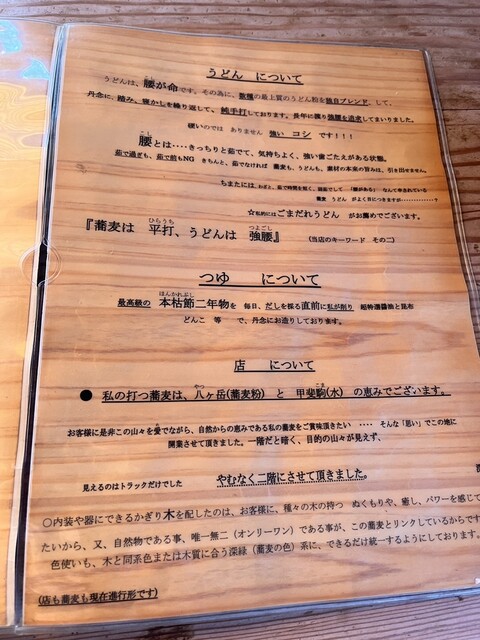 うどん について
うどんは、腰が命です。その為に、数種の最上質のうどん粉を独自ブレンド、して、
丹念に、踏み、寝かしを繰り返して、純手打しております。長年に渡り強腰を追求してまいりました。
硬いのでは ありません 強い コシ です!!!
こし
腰とは‥‥きっちりと茹でて、気持ちよく、強い歯ごたえがある状態。
茹で過ぎも、茹で前もNG きちんと、茹でなければ 蕎麦も、うどんも、素材の本来の旨みは、引き出せません。
ちまたには わざと、茹で時間を短く、固茹でして 「腰がある」 なんて申されている
蕎麦 うどん がよく目につきますが‥‥‥‥‥‥?
☆私的には ごまだれうどん がお薦めでございます。
ひらうち つよごし
『蕎麦は 平打、うどんは 強腰』 (当店のキーワード その二)
つゆ について
ほんかれぶし
最高級の 本枯節二年物を 毎日、だしを採る直前に私が削り 超特選醤油と昆布
どんこ 等 で、丹念にお造りしております。
店 について
やつ こま
● 私の打つ蕎麦は、八ヶ岳(蕎麦粉) と 甲斐駒(水) の恵みでございます。
お客様に是非この山々を愛でながら、自然からの恵みである私の蕎麦をご賞味頂きたい ‥‥ そんな「思い」でこの地に
開業させて頂きました。一階だと暗く、目的の山々が見えず、
見えるのはトラックだけでした やむなく二階にさせて頂きました。
〇内装や器にできるかぎり木を配したのは、お客様に、種々の木の持つ ぬくもりや、癒し、パワーを感じて
たいから、又、自然物である事、唯一無二(オンリーワン)である事が、この蕎麦とリンクしているからです
色使いも、木と同系色または木質に合う深緑(蕎麦の色)系に、できるだけ統一するようにしております。
(店も蕎麦も現在進行形です)